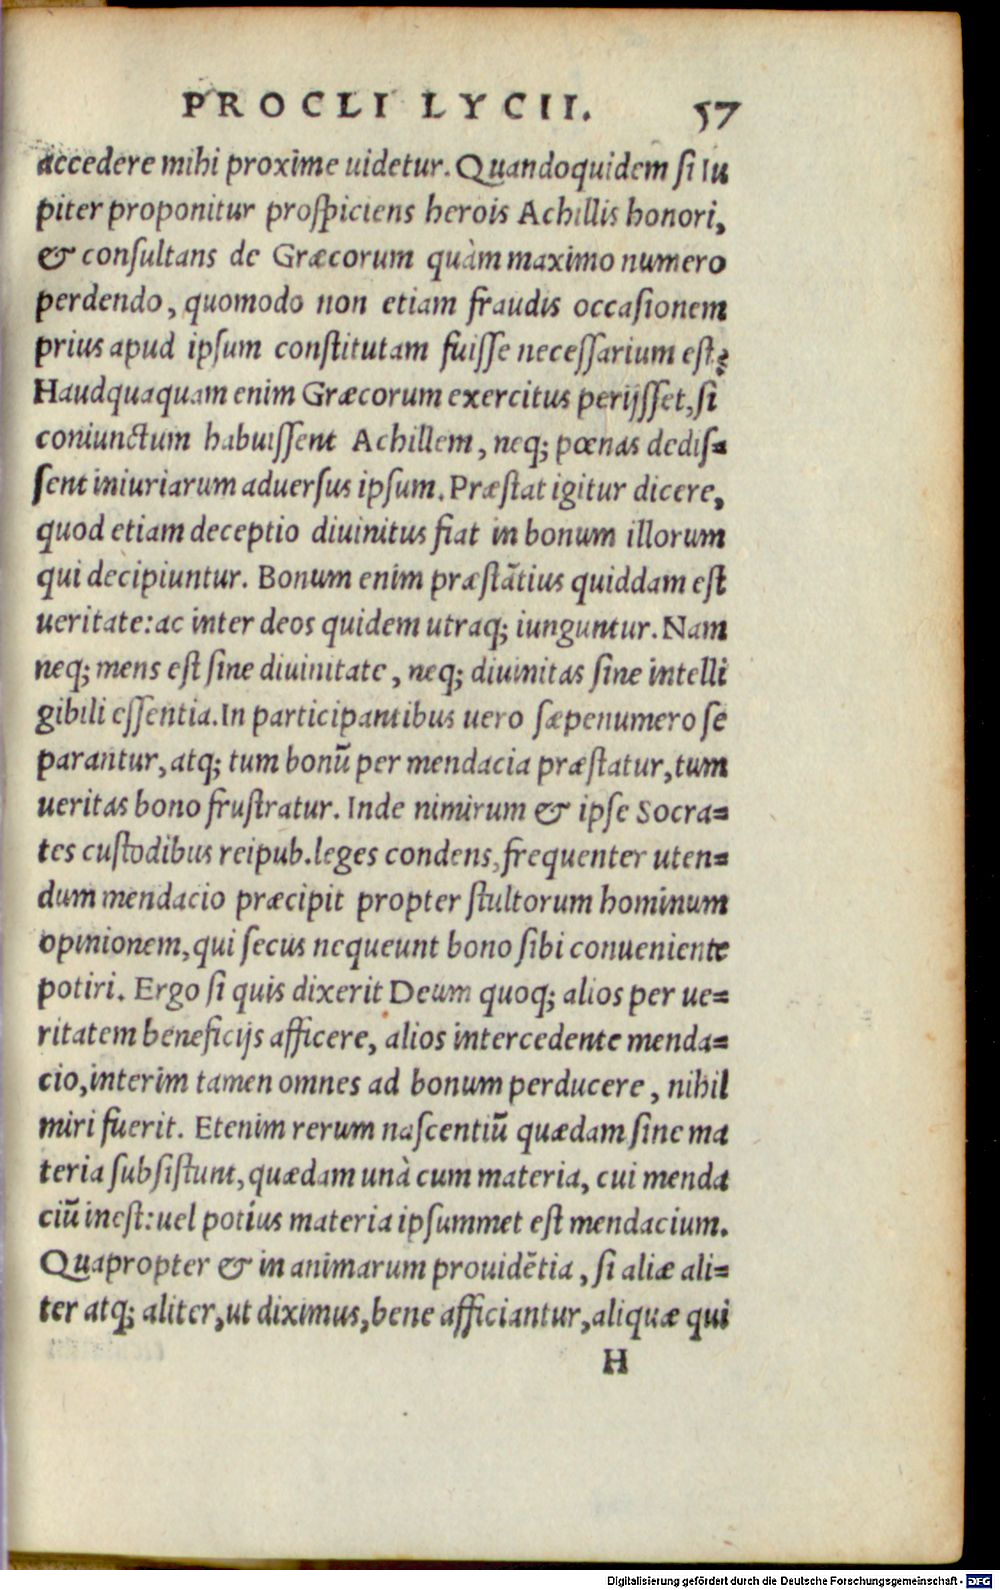 PROCLI LYCII. 57
accedere mihi proxime uidetur. Quandoquidem ſi Iu
piter proponitur proſpiciens herois Achillis honori,
& conſultans de Græcorum quàm maximo numero
perdendo, quomodo non etiam fraudis occaſionem
prius apud ipſum conſtitutam fuiſſe neceſſarium eſt?
Haudquaquam enim Græcorum exercitus perijſſet, ſi
coniunctum habuiſſent Achillem, neq; pœnas dediſ=
ſent iniuriarum aduerſus ipſum. Præſtat igitur dicere,
quod etiam deceptio diuinitus fiat in bonum illorum
qui decipiuntur. Bonum enim præſtãtius quiddam eſt
ueritate: ac inter deos quidem utraq; iunguntur. Nam
neq; mens eſt ſine diuinitate, neq; diuinitas ſine intelli
gibili eſſentia. In participantibus uero ſæpenumero ſe
parantur, atq; tum bonũ per mendacia præſtatur, tum
ueritas bono fruſtratur. Inde nimirum & ipſe Socra=
tes cuſtodibus reipub. leges condens, frequenter uten=
dum mendacio præcipit propter ſtultorum hominum
opinionem, qui ſecus nequeunt bono ſibi conueniente
potiri. Ergo ſi quis dixerit Deum quoq; alios per ue=
ritatem beneficijs afficere, alios intercedente menda=
cio, interim tamen omnes ad bonum perducere, nihil
miri fuerit. Etenim rerum naſcentiũ quædam ſine ma
teria ſubſiſtunt, quædam unà cum materia, cui menda
ciũ ineſt: uel potius materia ipſummet eſt mendacium.
Quapropter & in animarum prouidẽtia, ſi aliæ ali=
ter atq; aliter, ut diximus, bene afficiantur, aliquæ qui
H
Digitalisierung gefördert durch die Deutsche Forschungsgemeinschaft - DFG